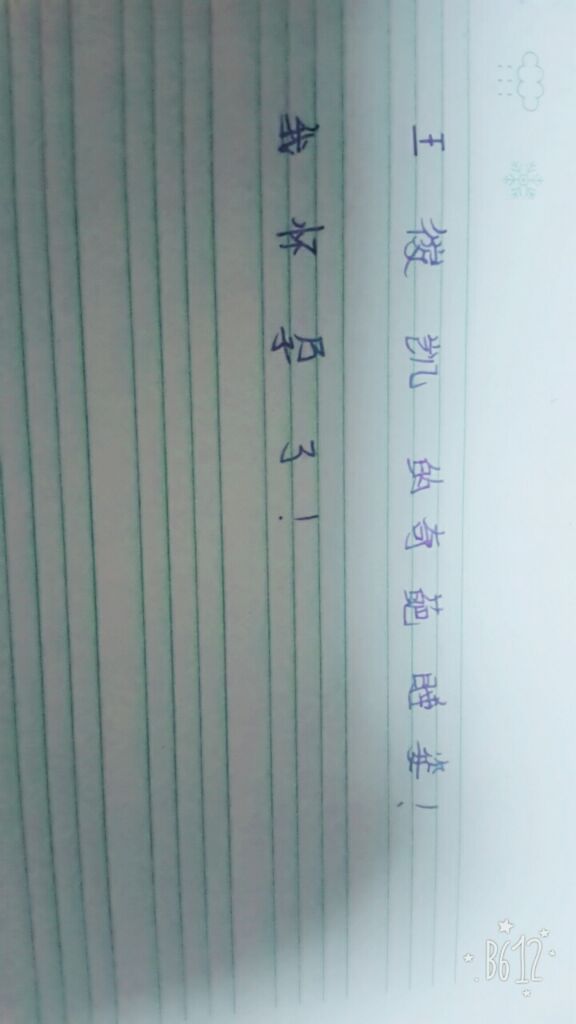 王俊凯的奇葩睡姿!
我怀孕了!
B612